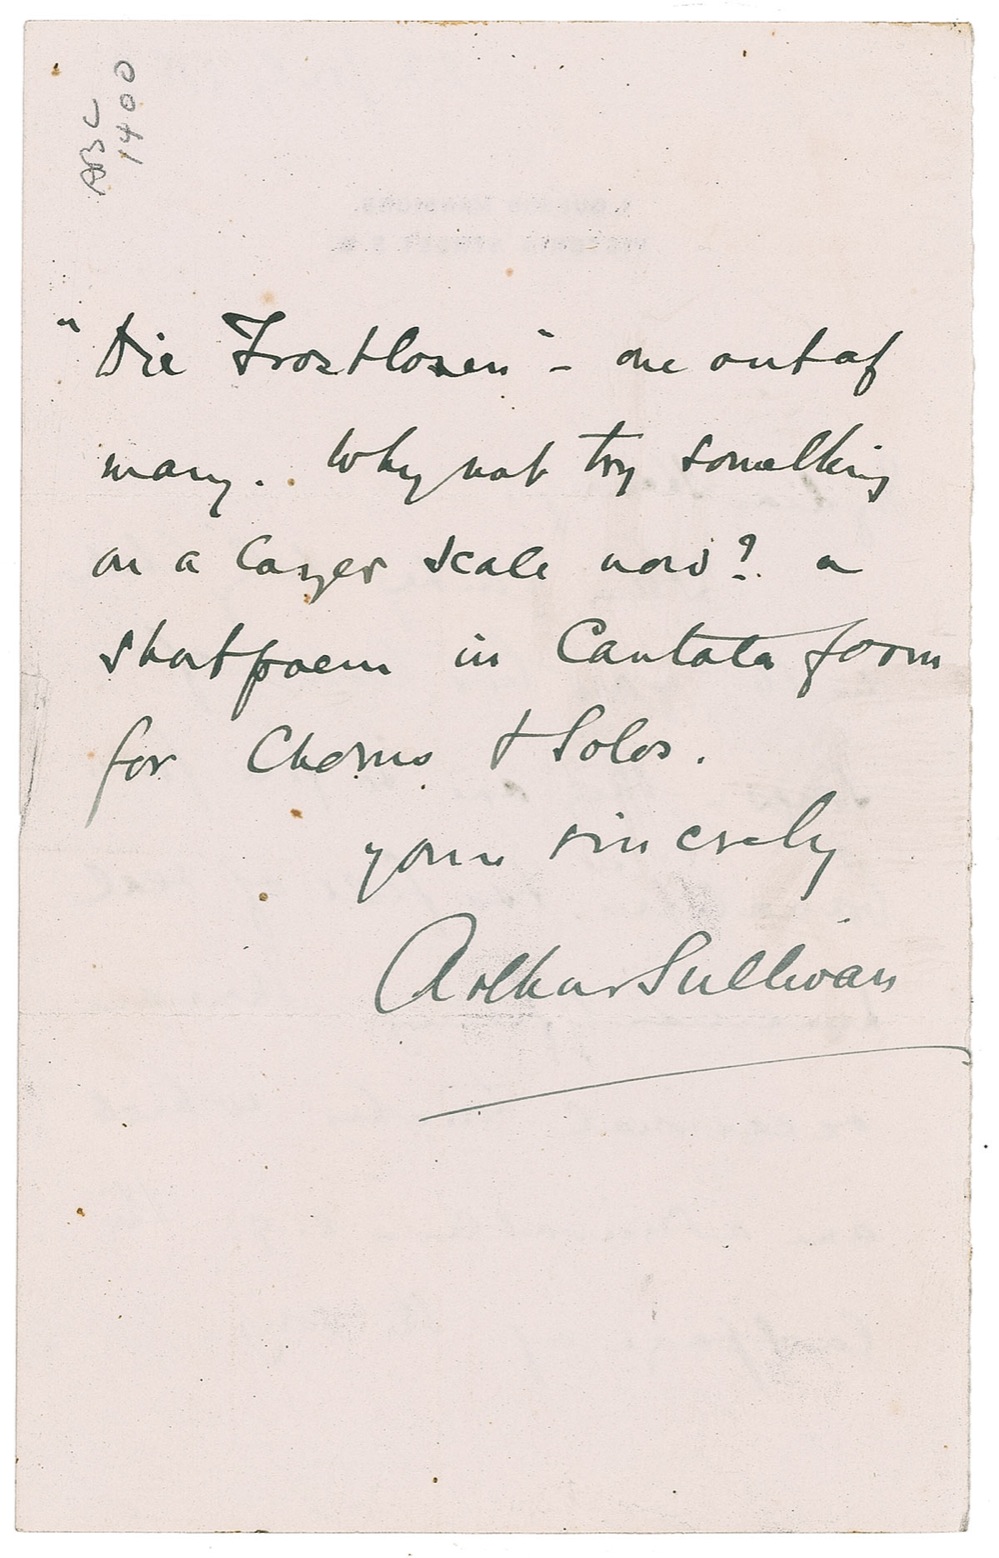 ABC
1400
"Die Trostlosen" - one out of
many. Why not try something
on a larger scale now? a
short poem in Cantata form
for Chorus & Solos.
yours sincerely
Arthur Sullivan